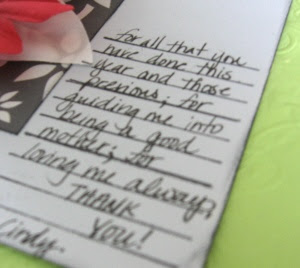 for all that you
have done this
year and those
previous; for
guiding me into
being a good
mother; for
loving me always,
THANK
YOU!
Cindy.